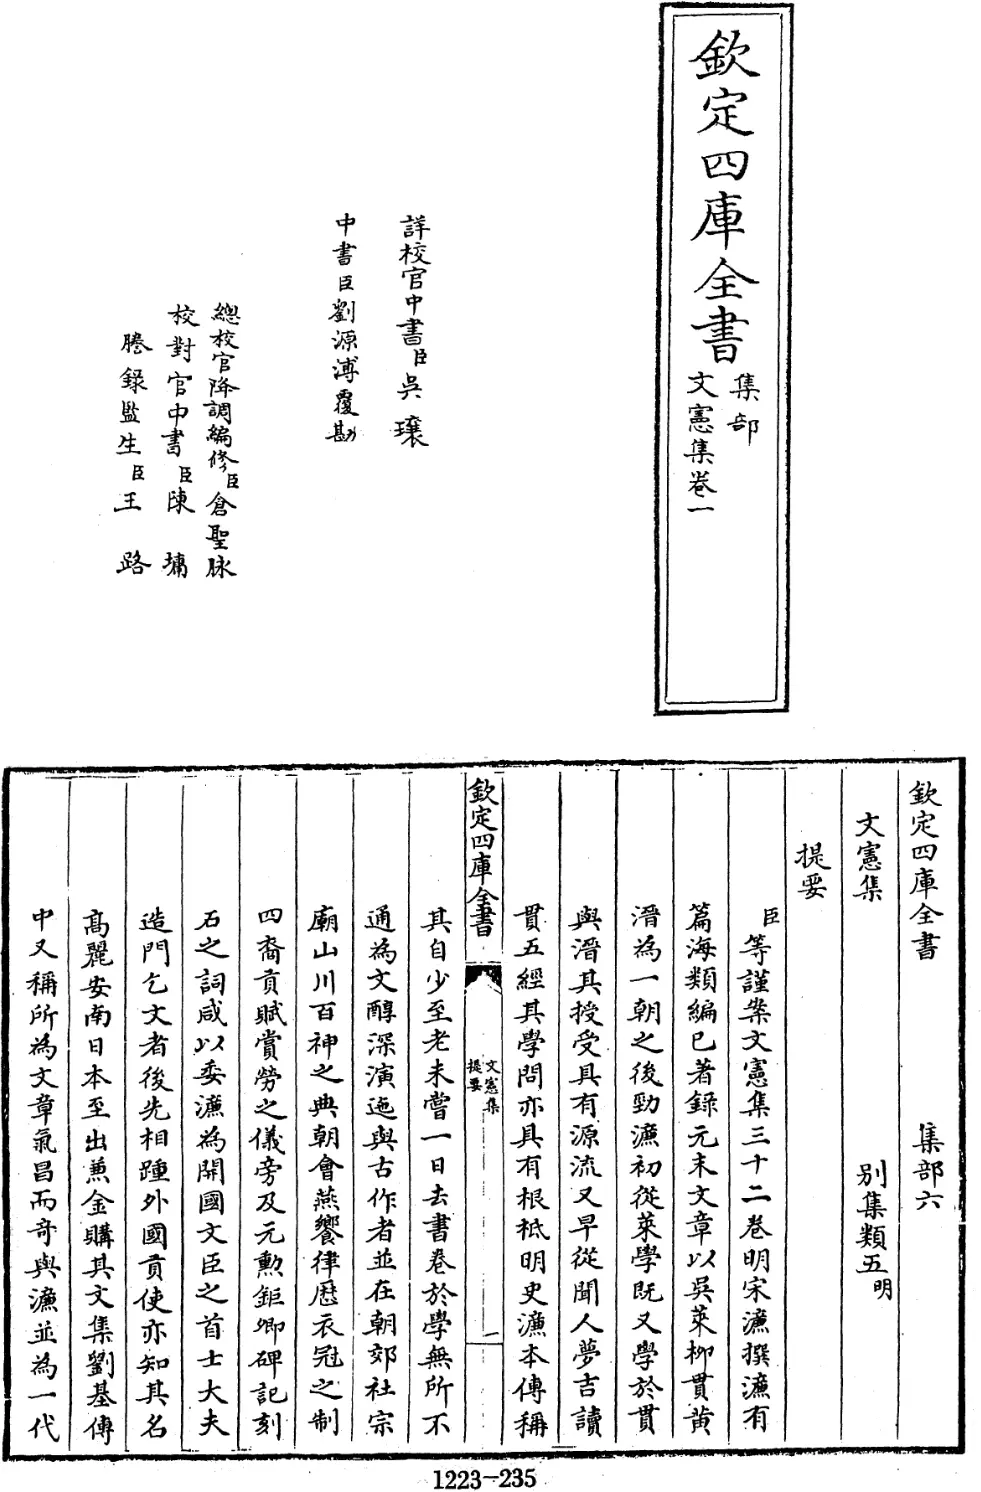 欽定四庫全書
集部
文憲集卷一
詳校官中書臣吳璥
中書臣劉源溥覆勘
總校官降調編修臣倉聖脉
校對官中書臣陳墉
謄錄監生臣王路
欽定四庫全書 集部六
文憲集 別集類五明
提要
臣等謹案文憲集三十二卷明宋濂撰濂有
篇海類編已著録元末文章以吳萊柳貫黄
溍為一朝之後勁濂初從萊學既又學於貫
與溍其授受具有源流又早從聞人夢吉讀
貫五經其學問亦具有根柢明史濂本傳稱
欽定四庫全書 文憲集提要 一
其自少至老未嘗一日去書卷於學無所不
通為文醇深演迤與古作者並在朝郊社宗
廟山川百神之典朝會燕饗律厯衣冠之制
四裔貢賦賞勞之儀旁及元勲鉅卿碑記刻
石之詞咸以委濂為開國文臣之首士大夫
造門乞文者後先相踵外國貢使亦知其名
高麗安南日本至出兼金購其文集劉基傳
中又稱所為文章氣昌而奇與濂並為一代
1223-235